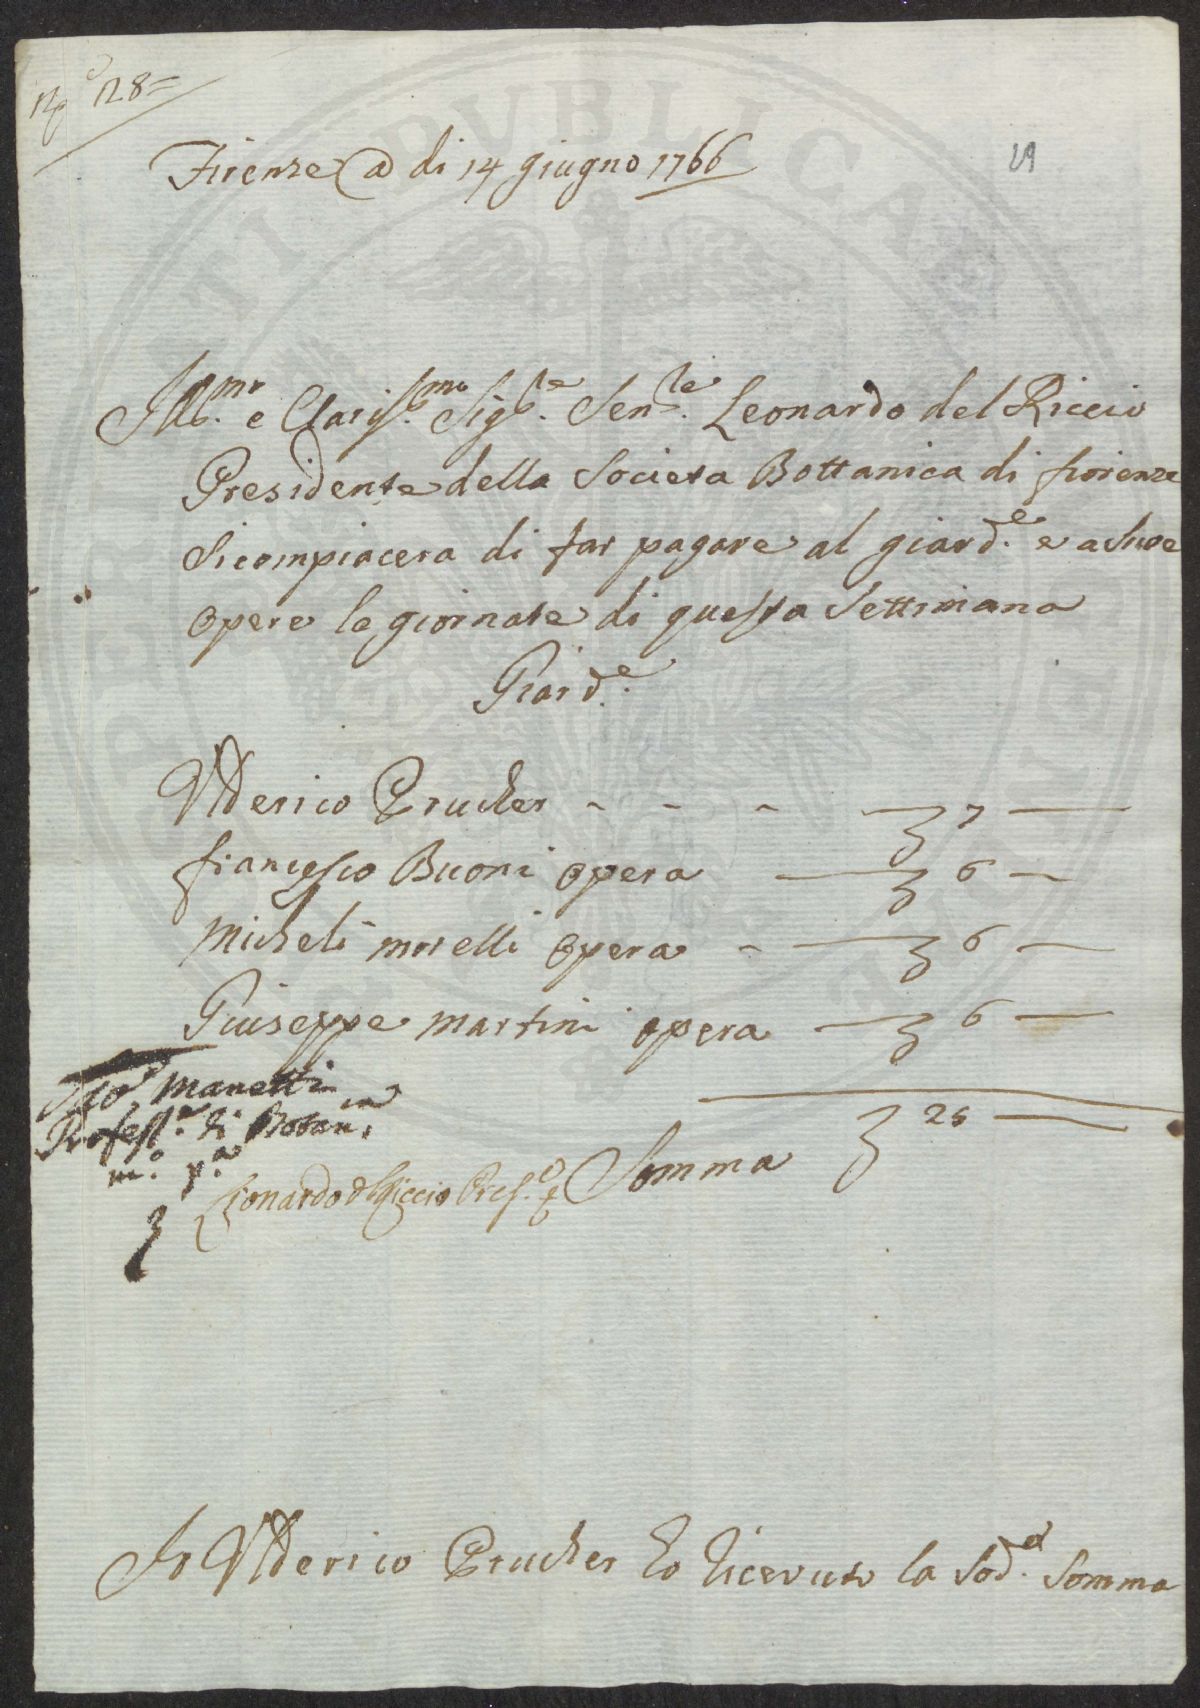 No 128=
29
Firenze a di 14 giugno 1766
Ill.mo e Clariss.mo Sig.re Sen.re Leonardo del Riccio
Presidente della Societa Bottanica di fiorenze
Sicompiacera di far pagare al giard.e e a Suoe
opere le giornate di questa Settimana
Giard.e
Ulderico Prucker - - - 7 —
francesco Buoni opera — 6 —
Micheli morelli opera — 6 —
Giuseppe martini opera — 6 —
Manetti
Profess.re di Botan.ca
m.o p.a
25 —
Somma
Lionardo del Riccio Pres.e
Io Ulderico Prucker ho Ricevuto la Sod.a Somma
PUBLICAE